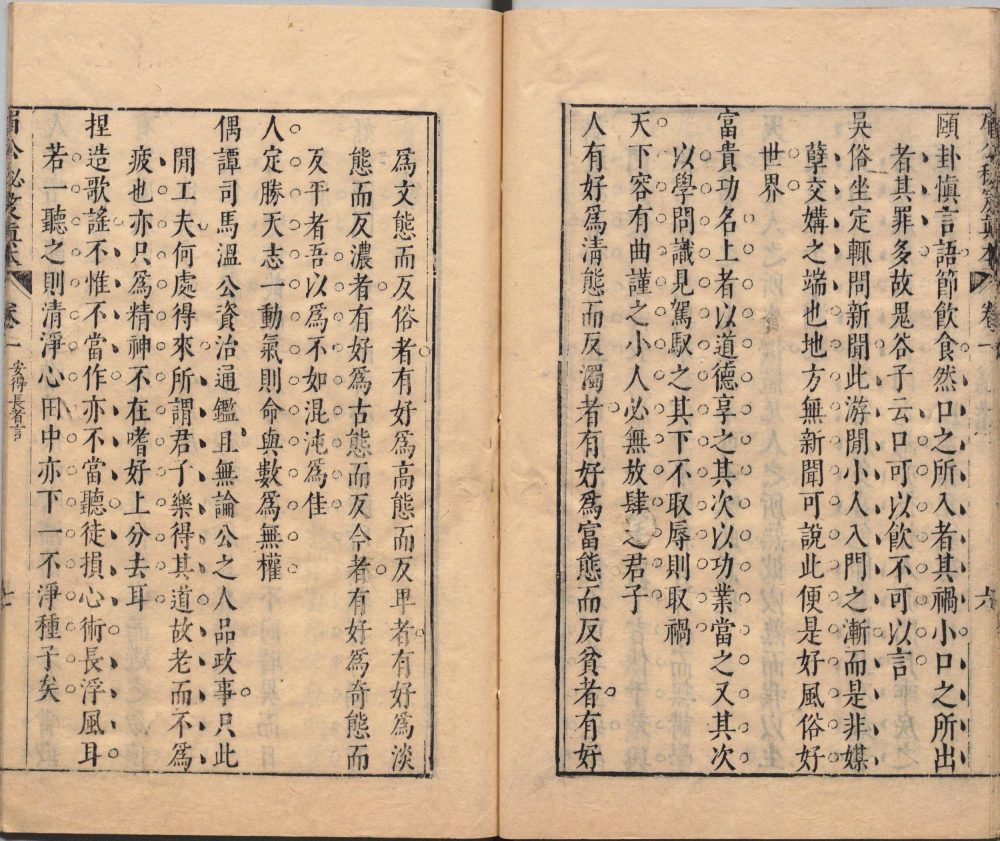 頤卦慎言語節飲食然口之所入者其禍小口之所出
者其罪多故鬼谷子云口可以飲不可以言
吳俗坐定輒問新聞此游閒小人入門之漸而是非媒
孽交媾之端也地方無新聞可說此便是好風俗好
世界
富貴功名上者以道德享之其次以功業當之又其次
以學問識見駕馭之其下不取辱則取禍
天下容有曲謹之小人必無放肆之君子
人有好爲清態而反濁者有好爲富態而反貧者有好
爲文態而反俗者有好爲高態而反卑者有好爲淡
態而反濃者有好爲古態而反今者有好爲奇態而
反平者吾以爲不如混沌爲佳
人定勝天志一動氣則命與數爲無權
偶譚司馬溫公資治通鑑且無論公之人品政事只此
閒工夫何處得來所謂君子樂得其道故老而不爲
疲也亦只爲精神不在嗜好上分去耳
捏造歌謠不惟不當作亦不當聽徒損心術長浮風耳
若一聽之則清淨心田中亦下一不淨種子矣
眉公祕笈眞本
卷一
安得長者言
七